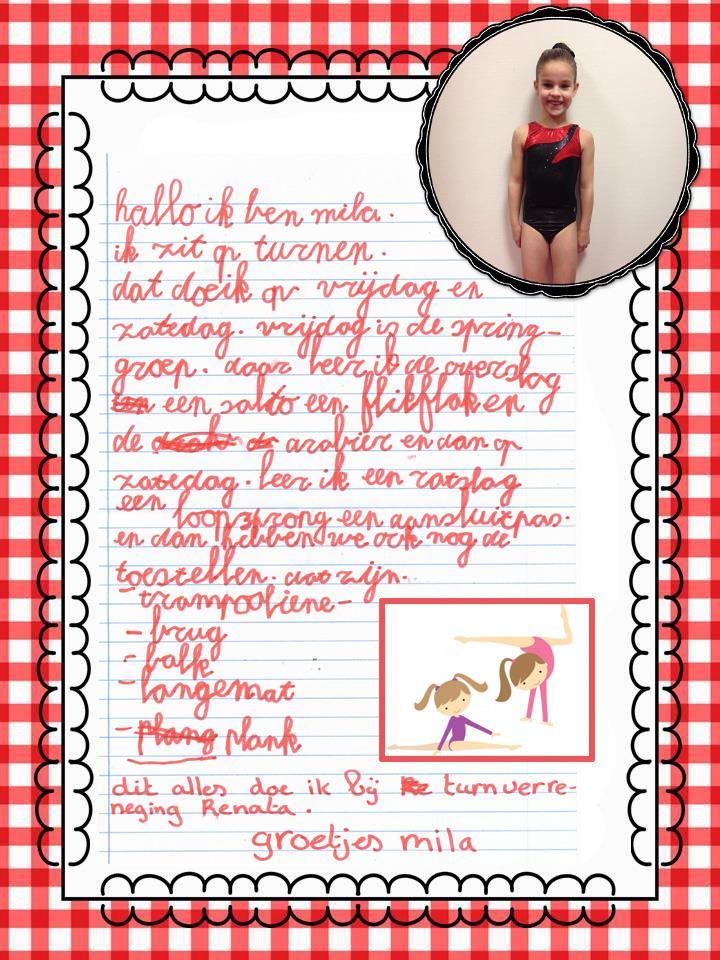 hallo ik ben mila.
ik zit op turnen.
dat doe ik op vrijdag en
zatedag. vrijdag is de spring-
groep. daar leer ik de overslag
een salto een flikflak en
de arabier en dan op
zatedag. leer ik een ratslag
een
loopsprong een aansluitpas.
en dan hebben we ook nog de
toestellen. dat zijn.
- trampooliene -
- brug
- balk
- langemat
- plang plank
dit alles doe ik bij turnverre-
neging Renata.
groetjes mila